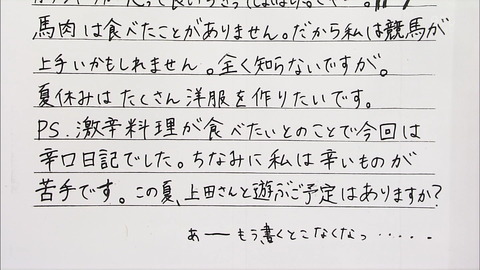 馬肉は食べたことがありません。だから私は競馬が
上手いかもしれません。全く知らないですが。
夏休みはたくさん洋服を作りたいです。
PS.激辛料理が食べたいとのことで今回は
辛口日記でした。ちなみに私は辛いものが
苦手です。この夏、上田さんと遊ぶご予定はありますか?
あーもう書くとこなくなっ・・・・・